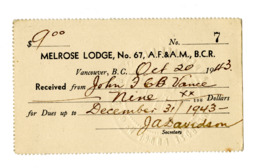 $9.00 No. 7
MELROSE LODGE, No. 67, A.F.&A.M., B.C.R.
Vancouver, B.C. Oct 20 1943
Received from John F C B Vance
Nine xx/100 Dollars
for Dues up to December 31/1943-
J A Davidson
Secretary